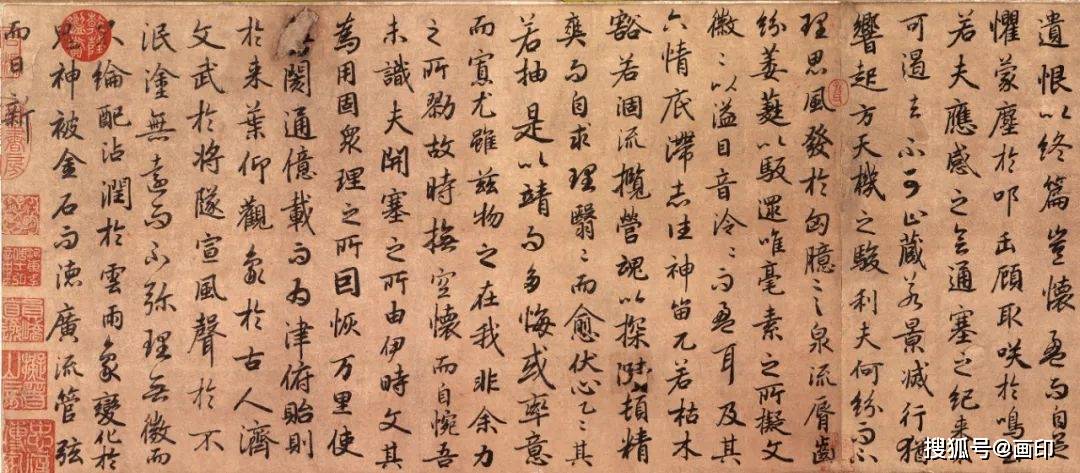 遺恨以終篇豈懷盈而自足
懼蒙塵於叩缶顧取咲於鳴
若夫應感之會通塞之紀來
可遏去不可止藏若景滅行猶
響起方天機之駿利夫何紛而不
理思風發於匈臆言泉流脣齒
紛葳蕤以馺遝唯毫素之所擬文
徽〻以溢目音泠〻而盈耳及其
六情底滯志往神留兀若枯木
豁若涸流攬營魂以探賾頓精
爽而自求理翳〻而愈伏心乙〻其
若抽是以靖而多悔或率意
而寡尤雖茲物之在我非余力
之所勠故時撫空懷而自惋吾
未識夫開塞之所由伊時文其
為用固眾理之所因恢万里使
閡通億載而為津俯貽則
於來葉仰觀象於古人濟
文武於將隧宣風聲於不
泯塗無遠而不弥理無微而
不綸配沾潤於雲雨象變化於
鬼神被金石而德廣流管弦
而日新
搜狐号@画印